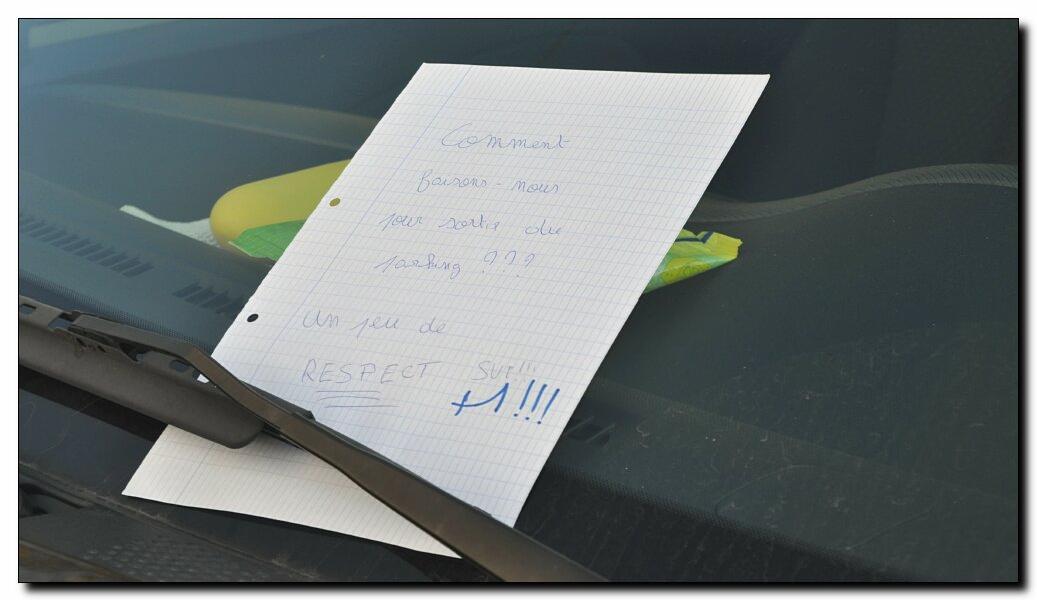 Comment
faisons-nous
pour sortir du
parking ???
Un peu de
RESPECT SVP!!!
+1!!!